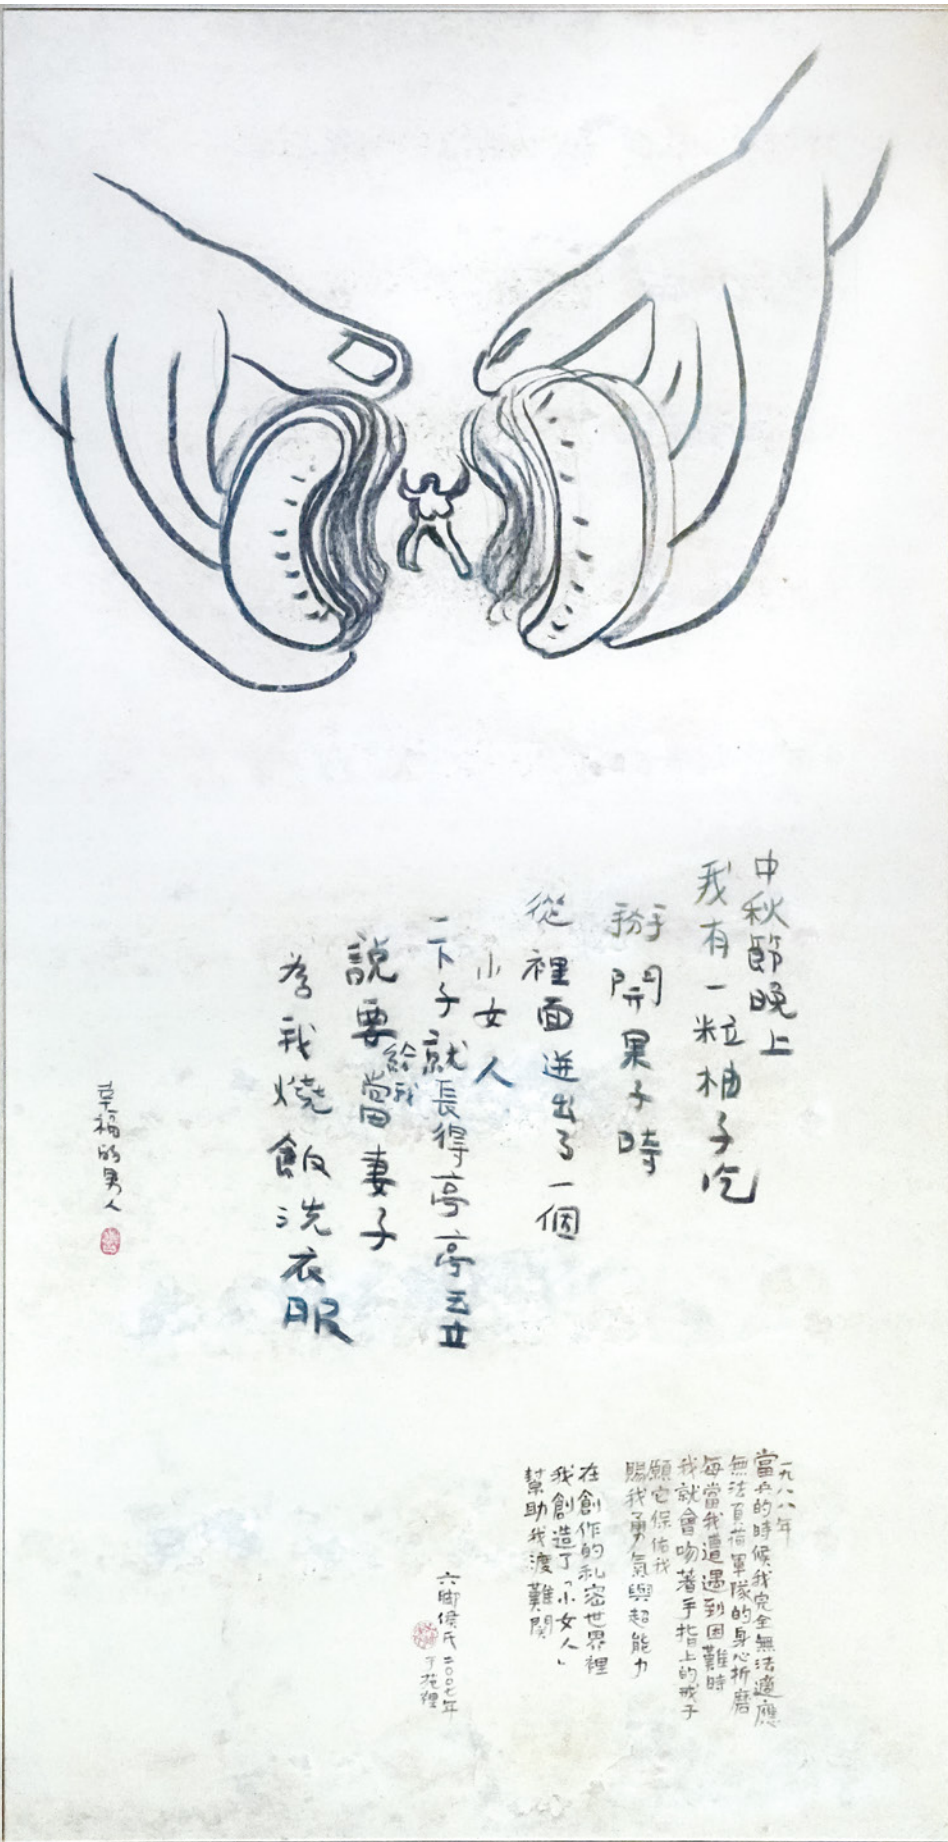 中秋節晚上
我有一粒柚子吃
掰開果子時
從裡面迸出了一個
小女人
一下子就長得亭亭玉立
說要給我當妻子
為我燒飯洗衣服
幸福的男人
一九八八年
當兵的時候我完全無法適應
無法負荷軍隊的身心折磨
每當我遭遇到困難時
我就會吻著手指上的戒子
願它保佑我
賜我勇氣與超能力
在創作的私密世界裡
我創造了「小女人」
幫助我渡難關
六脚侯氏二〇〇七年
于苑裡